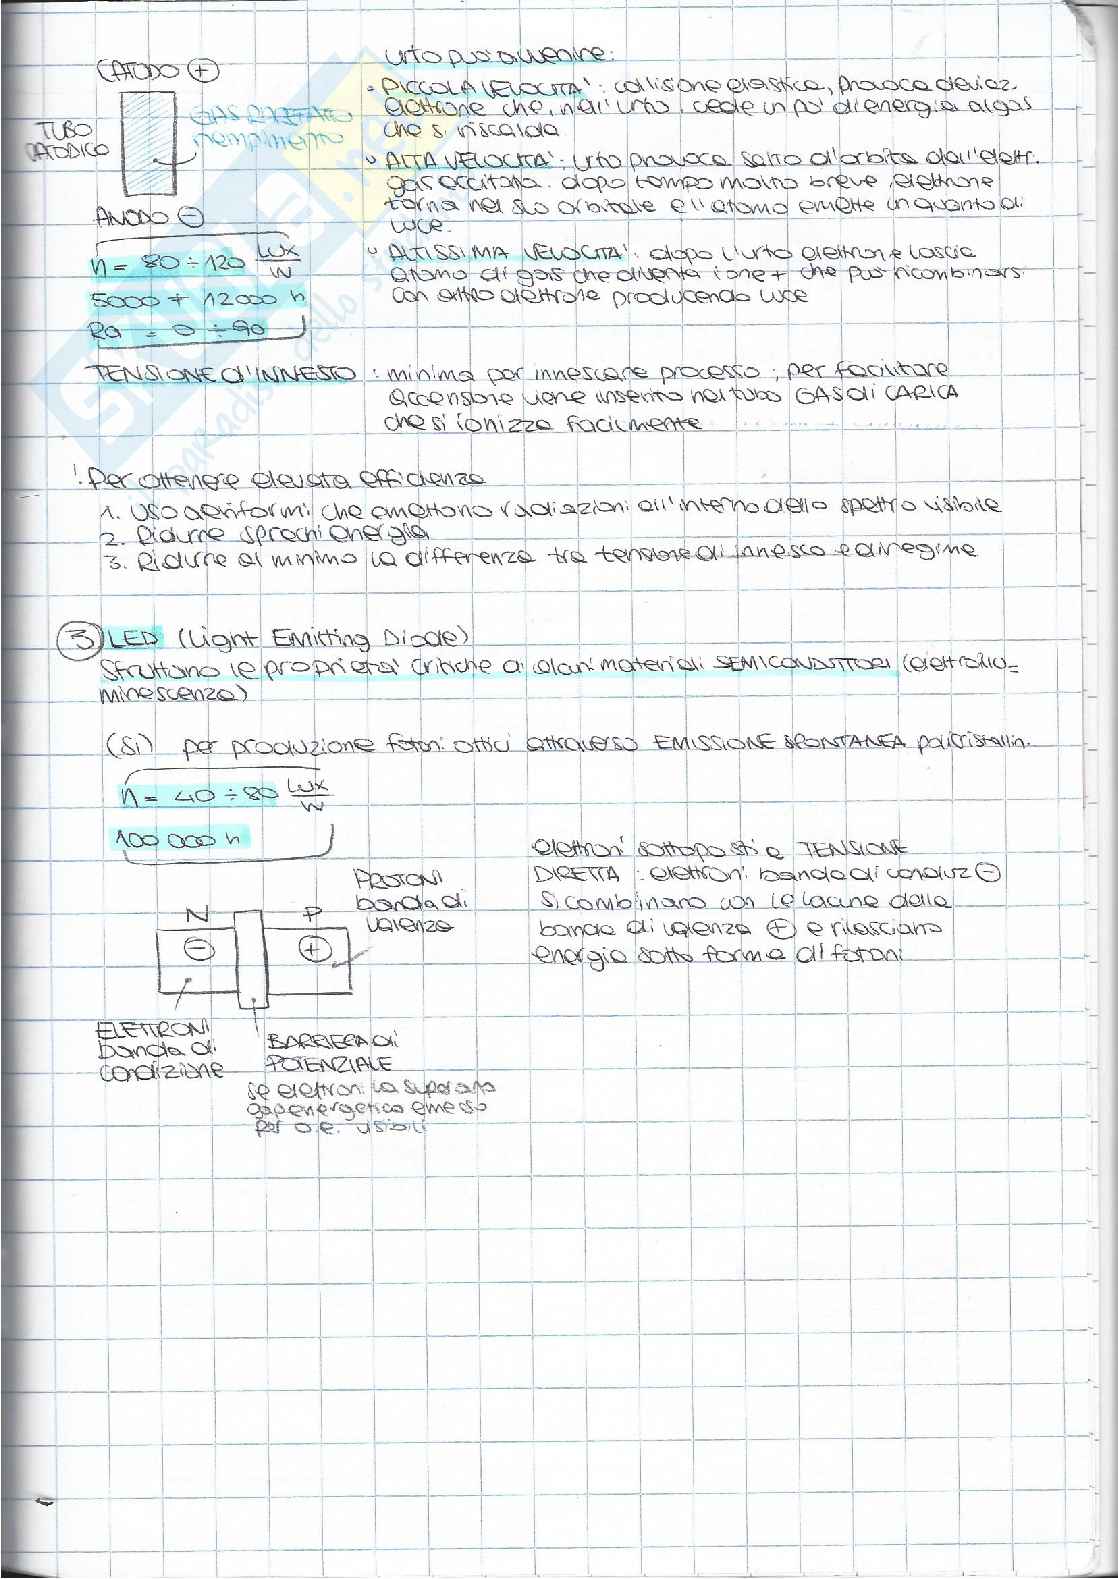 CATODO +
TUBO
CATODICO
GAS RAREFATO
riempimento
ANODO -
n = 80 ÷ 120 Lux/W
5000 ÷ 12000 h
Ra = 0 ÷ 90
urto può avvenire:
• PICCOLA VELOCITA': collisione elastica, provoca deviaz.
elettrone che, nell'urto, cede un po' di energia al gas
che si riscalda
• ALTA VELOCITA': urto provoca salto d'orbita dell'elettr.
gas eccitato. dopo tempo molto breve, elettrone
torna nel suo orbitale e l'atomo emette un quanto di
luce.
• ALTISSIMA VELOCITA': dopo l'urto elettrone lascia
atomo di gas che diventa ione + che può ricombinarsi
con altro elettrone producendo luce
TENSIONE d'INNESTO: minima per innescare processo; per facilitare
accensione viene inserito nel tubo GAS di CARICA
che si ionizza facilmente
! Per ottenere elevata efficienza
1. Uso aeriformi che emettono radiazioni all'interno dello spettro visibile
2. Ridurre sprechi energia
3. Ridurre al minimo la differenza tra tensione di innesco e di regime
3 LED (Light Emitting Diode)
Sfruttano le proprietà critiche di alcuni materiali SEMICONDUTTORI (elettrolu-
minescenza)
(Si) per produzione fotoni ottici attraverso EMISSIONE SPONTANEA policristallin.
n = 40 ÷ 80 Lux/W
100 000 h
N P
- +
PROTONI
banda di
valenza
ELETTRONI
banda di
condizione
BARRIERA di
POTENZIALE
se elettroni la superano
gap energetico emesso
per o.e. visibili
elettroni sottoposti e TENSIONE
DIRETTA: elettroni banda di conduz -
si combinano con le lacune della
banda di valenza + e rilasciano
energia sotto forma di fotoni